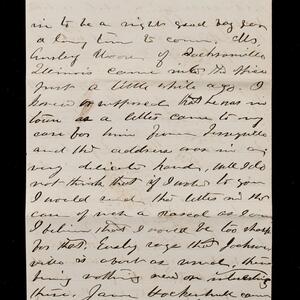 in to be a right good boy for
a long time to come. Mr.
Ensley Moore, of Jacksonville
Illinois came into the office
just a little while ago. I
knew or supposed that he was in
town as a letter came to my
care for him from Jerseyville
and the address was in a
very delicate hand, well I do
not think that if I wrote to you
I would send the letter in the
care of such a rascal as I am
I believe that I would be too sharp
for that. Ensley says that Jackson-
ville is about as usual, there
being nothing new or interesting
there. Jane